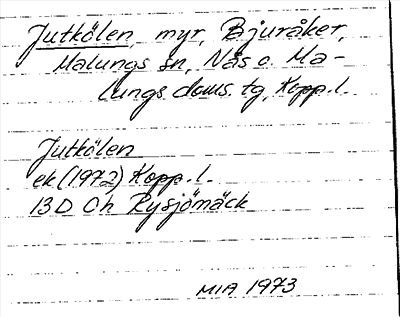 Jutkölen, myr, Bjuråker,
Malungs sn, Nås o. Ma-
lungs doms. tg, Kopp. l.
Jutkölen
ek (1972) Kopp. l.
13D Ch Rysjömäck
MIA 1973